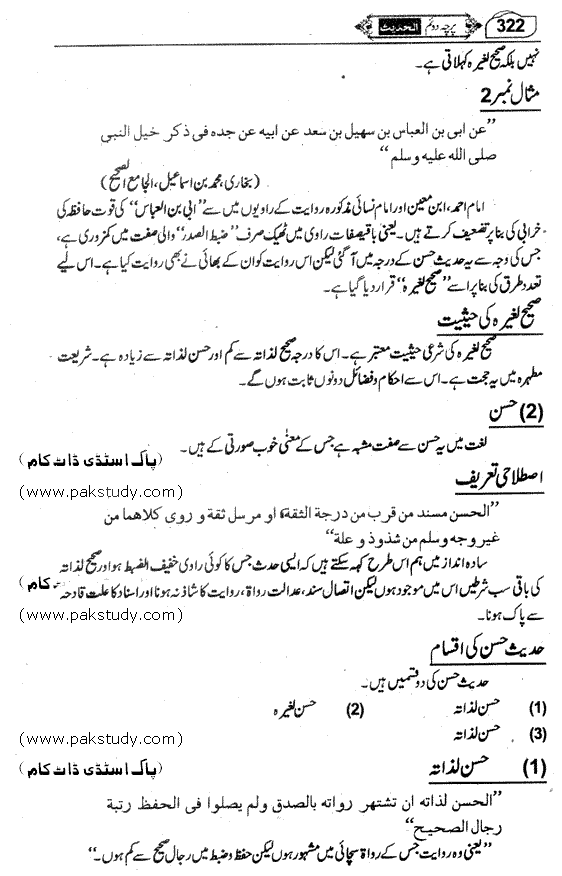 322 الحدیث پرچہ دوئم
نہیں بلکہ صحیح لغیرہ کہلاتی ہے۔
مثال نمبر 2
”عن ابی بن العباس بن سھیل بن سعد عن ابیہ عن جدہ فی ذکر خیل النبی
صلی اللہ علیہ وسلم“
(بخاری، محمد بن اسماعیل، الجامع الصحیح)
امام احمد، ابن معین اور امام نسائی مذکورہ روایت کے راویوں میں سے ”ابی بن العباس“ کی قوت حافظہ کی
خرابی کی بنا پر تضعیف کرتے ہیں۔ یعنی باقی صفات راوی میں ٹھیک صرف ”ضبط الصدر“ والی صفت میں کمزوری ہے،
جس کی وجہ سے یہ حدیث حسن کے درجہ میں آگئی لیکن اس روایت کو ان کے بھائی نے بھی روایت کیا ہے۔ اس لیے
تعدد طرق کی بنا پر اسے ”صحیح لغیرہ“ قرار دیا گیا ہے۔
صحیح لغیرہ کی حیثیت
صحیح لغیرہ کی شرعی حیثیت معتبر ہے۔ اس کا درجہ صحیح لذاتہ سے کم اور حسن لذاتہ سے زیادہ ہے۔ شریعت
مطہرہ میں یہ حجت ہے۔ اس سے احکام و فضائل دونوں ثابت ہوں گے۔
(2) حسن
لغت میں یہ حسن سے صفت مشبہ ہے جس کے معنٰی خوب صورتی کے ہیں۔
(پاک اسٹڈی ڈاٹ کام)
اصطلاحی تعریف
(www.pakstudy.com)
”الحسن مسند من قرب من درجة الثقة، او مرسل ثقة و روی کلاھما من
غیر وجہ وسلم من شذوذ و علة“
سادہ انداز میں ہم اس طرح کہہ سکتے ہیں کہ ایسی حدیث جس کا کوئی راوی خفیف الضبط ہو اور صحیح لذاتہ
کی باقی سب شرطیں اس میں موجود ہوں لیکن اتصال سند، عدالت رواۃ، روایت کا شاذ نہ ہونا اور اسناد کا علت قادحہ کام)
سے پاک ہونا۔
(www.pakstudy.com)
حدیث حسن کی اقسام
حدیث حسن کی دو قسمیں ہیں۔
(1) حسن لذاتہ (2) حسن لغیرہ
(3) حسن لذاتہ
(www.pakstudy.com)
(1) حسن لذاتہ
(پاک اسٹڈی ڈاٹ کام)
”الحسن لذاتہ ان تشتھر رواتہ بالصدق ولم یصلوا فی الحفظ رتبة
رجال الصحیح“
”یعنی وہ روایت جس کے رواۃ سچائی میں مشہور ہوں لیکن حفظ و ضبط میں رجال صحیح سے کم ہوں۔“